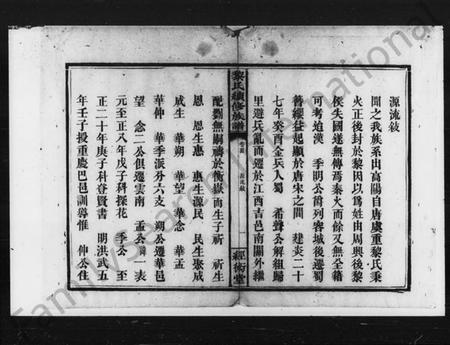 源流敍
聞之我族系出高陽自唐虞重黎氏秉
火正後封於黎因以爲姓由周興後黎
侯失國遂無傳焉秦火而餘又無全籍
可考迨漢 季明公爵列容城後遷蜀
替纓益起顯於唐宋之間 建炎二十
七年癸酉金兵入蜀 希聲公解組歸
里遊兵亂而遷於江西吉邑南關外繼
黎氏續修族譜
卷首
源流敍
一
經術堂
配劉無嗣禱於衡嶽而生子祈 祈生
恩 恩生惠 惠生源民 民生聚成
成生 華朔 華望 華念 華孟
華仲 華季派分六支 朔公遷華邑
望 念二公俱遷雲南 孟公 一表
元至正八年戊子科探花 季公 至
正二十年庚子科登賢書 明洪武五
年壬子授重慶巴邑訓導惟 仲公住
FamilySearch International